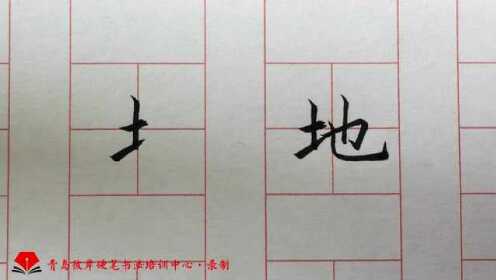 土 地
青岛彼岸硬笔书法培训中心·录制